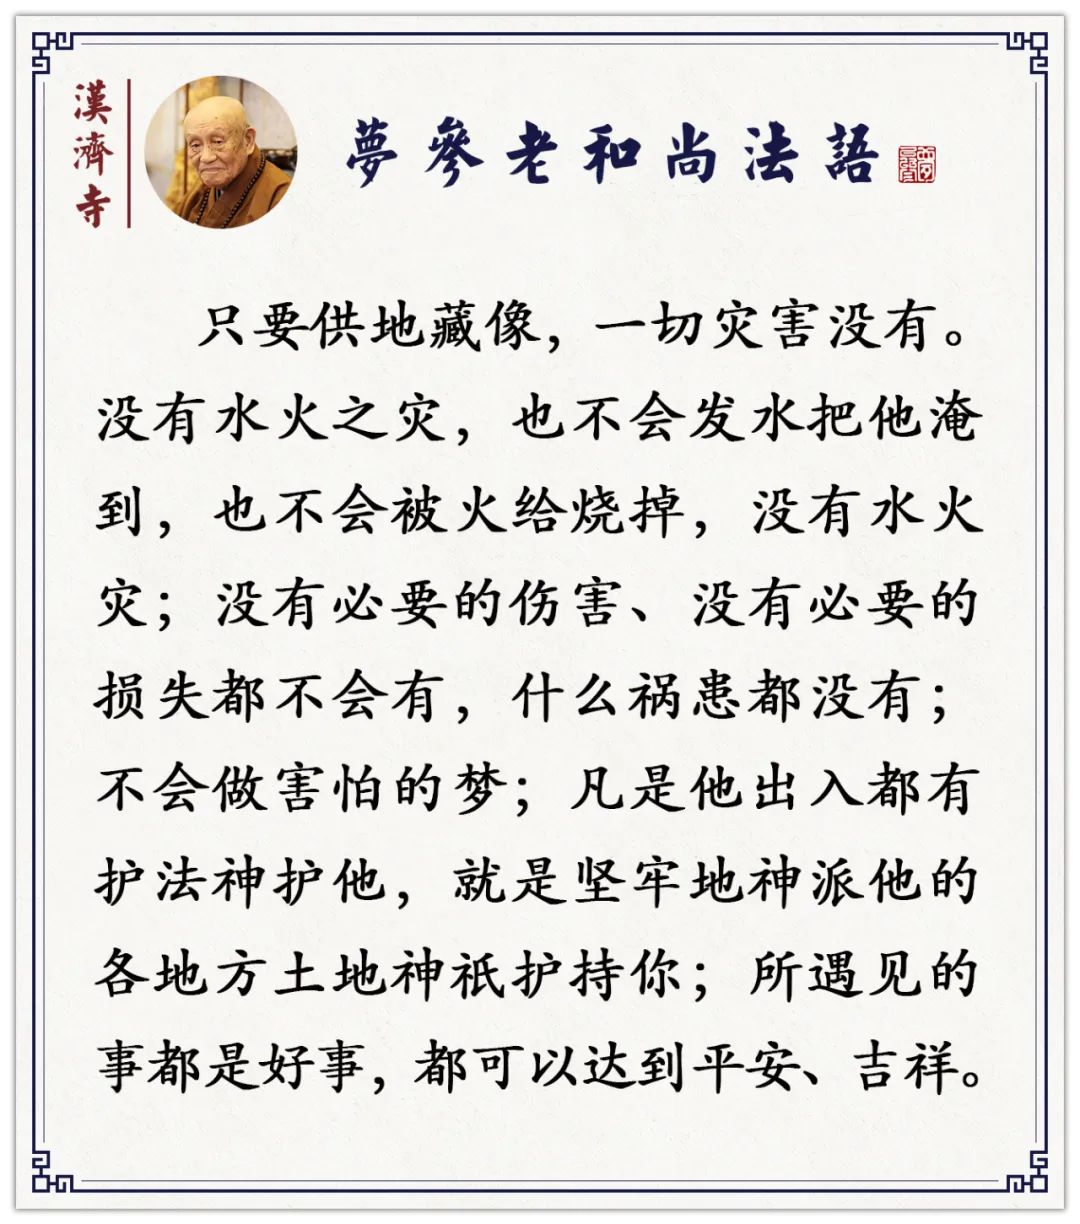 漢濟寺
夢參老和尚法語
只要供地藏像，一切灾害没有。
没有水火之灾，也不会发水把他淹
到，也不会被火给烧掉，没有水火
灾；没有必要的伤害、没有必要的
损失都不会有，什么祸患都没有；
不会做害怕的梦；凡是他出入都有
护法神护他，就是坚牢地神派他的
各地方土地神祇护持你；所遇见的
事都是好事，都可以达到平安、吉祥。